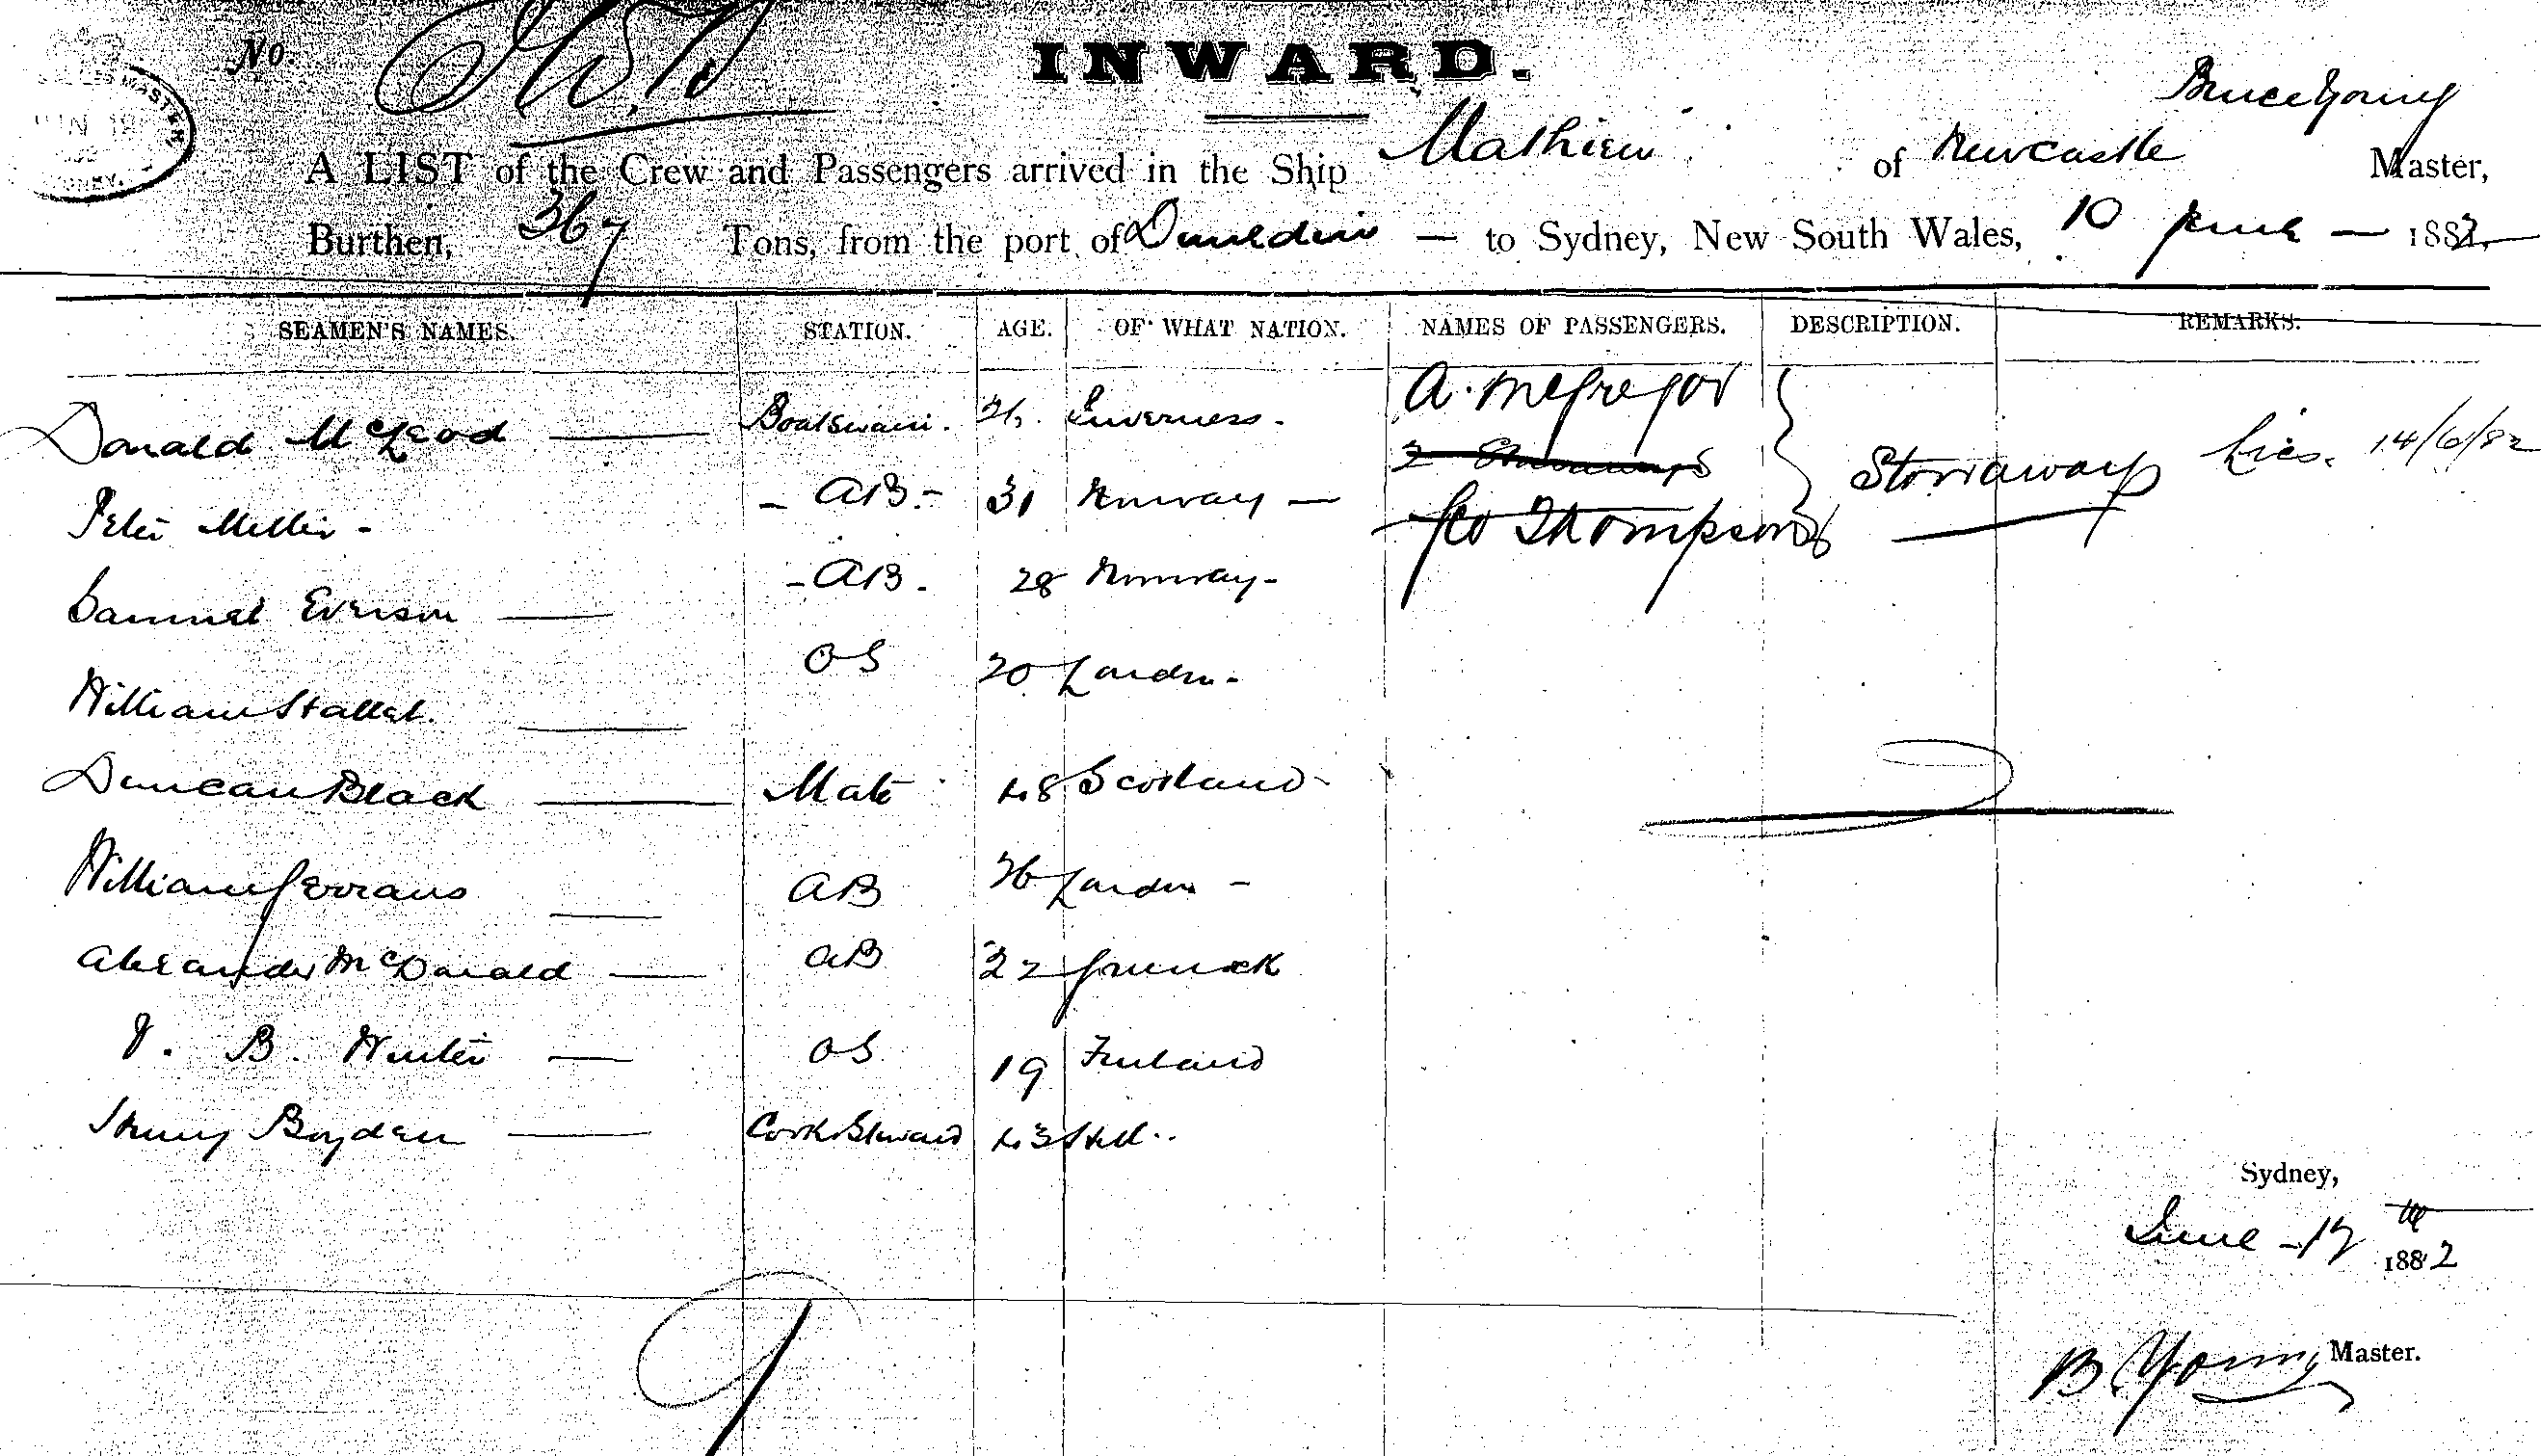 No.
INWARD.
Bruce Young
A LIST of the Crew and Passengers arrived in the Ship Mathieu of Newcastle Master,
Burthen, 367 Tons, from the port of Dunedin — to Sydney, New South Wales, 10 June — 1882
SEAMEN'S NAMES. STATION. AGE. OF WHAT NATION. NAMES OF PASSENGERS. DESCRIPTION. REMARKS.
Donald McLeod — Boatswain. 26. Inverness. A. McGregor
2 Stowaways
Stowaways
14/6/82
Peter Miller - - AB. - 31 Norway — Geo Thompson
Samuel Everson — - AB. 28 Norway -
William Stallet. — OS 20 London -
Duncan Black — Mate 48 Scotland -
William Gerrans — AB 26 London -
Alexander McDonald — AB 22 Greenock
B. Winter — OS 19 Finland
Henry Boyden — Cook & Steward 43 Hull..
Sydney,
June - 12th
1882
B. Young Master.
9
MASTER
SYDNEY.